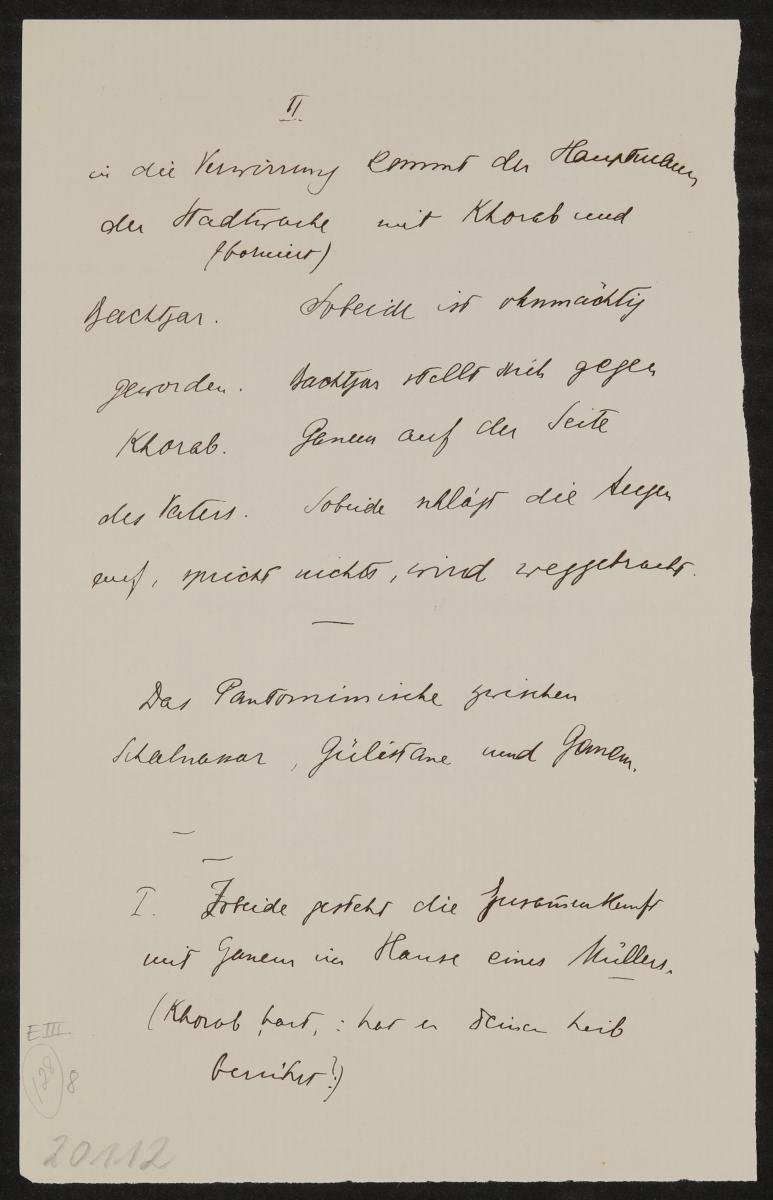 II
in die Verwirrung kommt der Hauptmann
der Stadtwache mit Khorab und
(borniert)
Bachtjar. Sobeide ist ohnmächtig
geworden. Bachtjar stellt sich gegen
Khorab. Ganem auf der Seite
des Vaters. Sobeide schlägt die Augen
auf, spricht nichts, wird weggebracht.
—
Das Pantomimische zwischen
Schalnassar, Gülistane und Ganem.
—
—
I. Zobeide gesteht die Zusam̅enkunft
mit Ganem im Hause eines Müllers.
(Khorab hart,: hat er deinen Leib
berührt?)
E III
128
8
20112